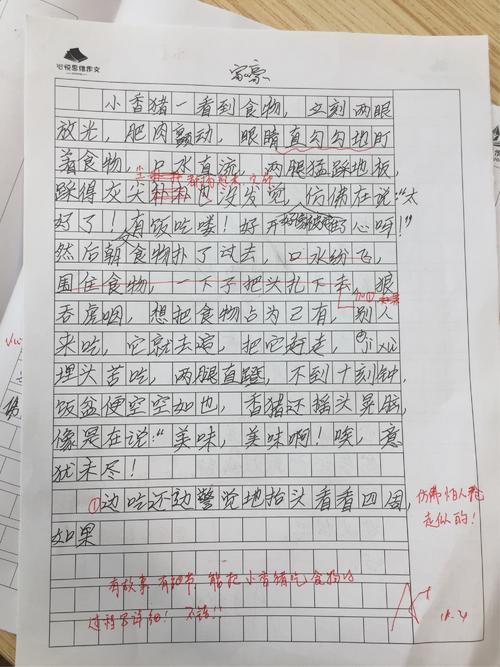 悦思维作文
富豪
小香猪一看到食物，立刻两眼
放光，肥肉颤动，眼睛直勾勾地盯
着食物，口水直流，两腿猛踩地板，
踩得灰尘扑扑也没发觉，仿佛在说：“太
好了！有饭吃喽！好开心哞！
然后朝食物扑了过去，口水纷飞，
围住食物，一下子把头扎下去，狼
加① 如果
吞虎咽，想把食物占为己有，别人
来吃，它就去追，把它赶走，jì xù
埋头苦吃，两腿直蹬，不到十刻钟，
饭盆便空空如也，香猪还摇头晃脑，
像是在说：“美味，美味啊！唉，意
犹未尽！
①边吃还边警觉地抬头看看四周，
仿佛怕人抢
走似的！
如果
有故事 有细节 能把小香猪吃食物的
过程写详细！不错！！
A+